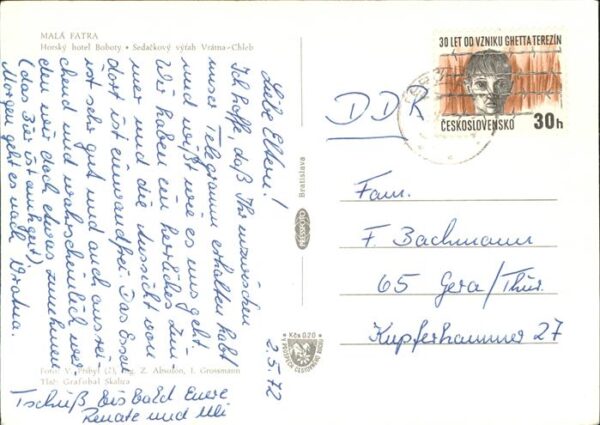 MALÁ FATRA
Horský hotel Boboty • Sedačkový výťah Vrátna-Chleb
Liebe Eltern!
Ich hoffe, daß Ihr inzwischen
unser Telegramm erhalten habt
und wißt wie es uns geht.
Wir haben ein herrliches Zim-
mer und die Aussicht von
dort ist einwandfrei. Das Essen
ist sehr gut und auch ausrei-
chend und wahrscheinlich wer-
den wir doch etwas zunehmen
(das Bier ist auch gut).
Morgen geht es nach Vratna.
Tschüß bis bald Eure
Renate und Ulli
2.5.72
Foto: V. Přibyl (2), Z. Absolon, I. Grossmann
Tlač: Grafobal Skalica
Bratislava
PRESSFOTO
Kčs 0,20
30 LET OD VZNIKU GHETTA TEREZÍN
ČESKOSLOVENSKO 30h
DDR
Fam.
F. Bachmann
65 Gera/Thür.
Kupferhammer 27